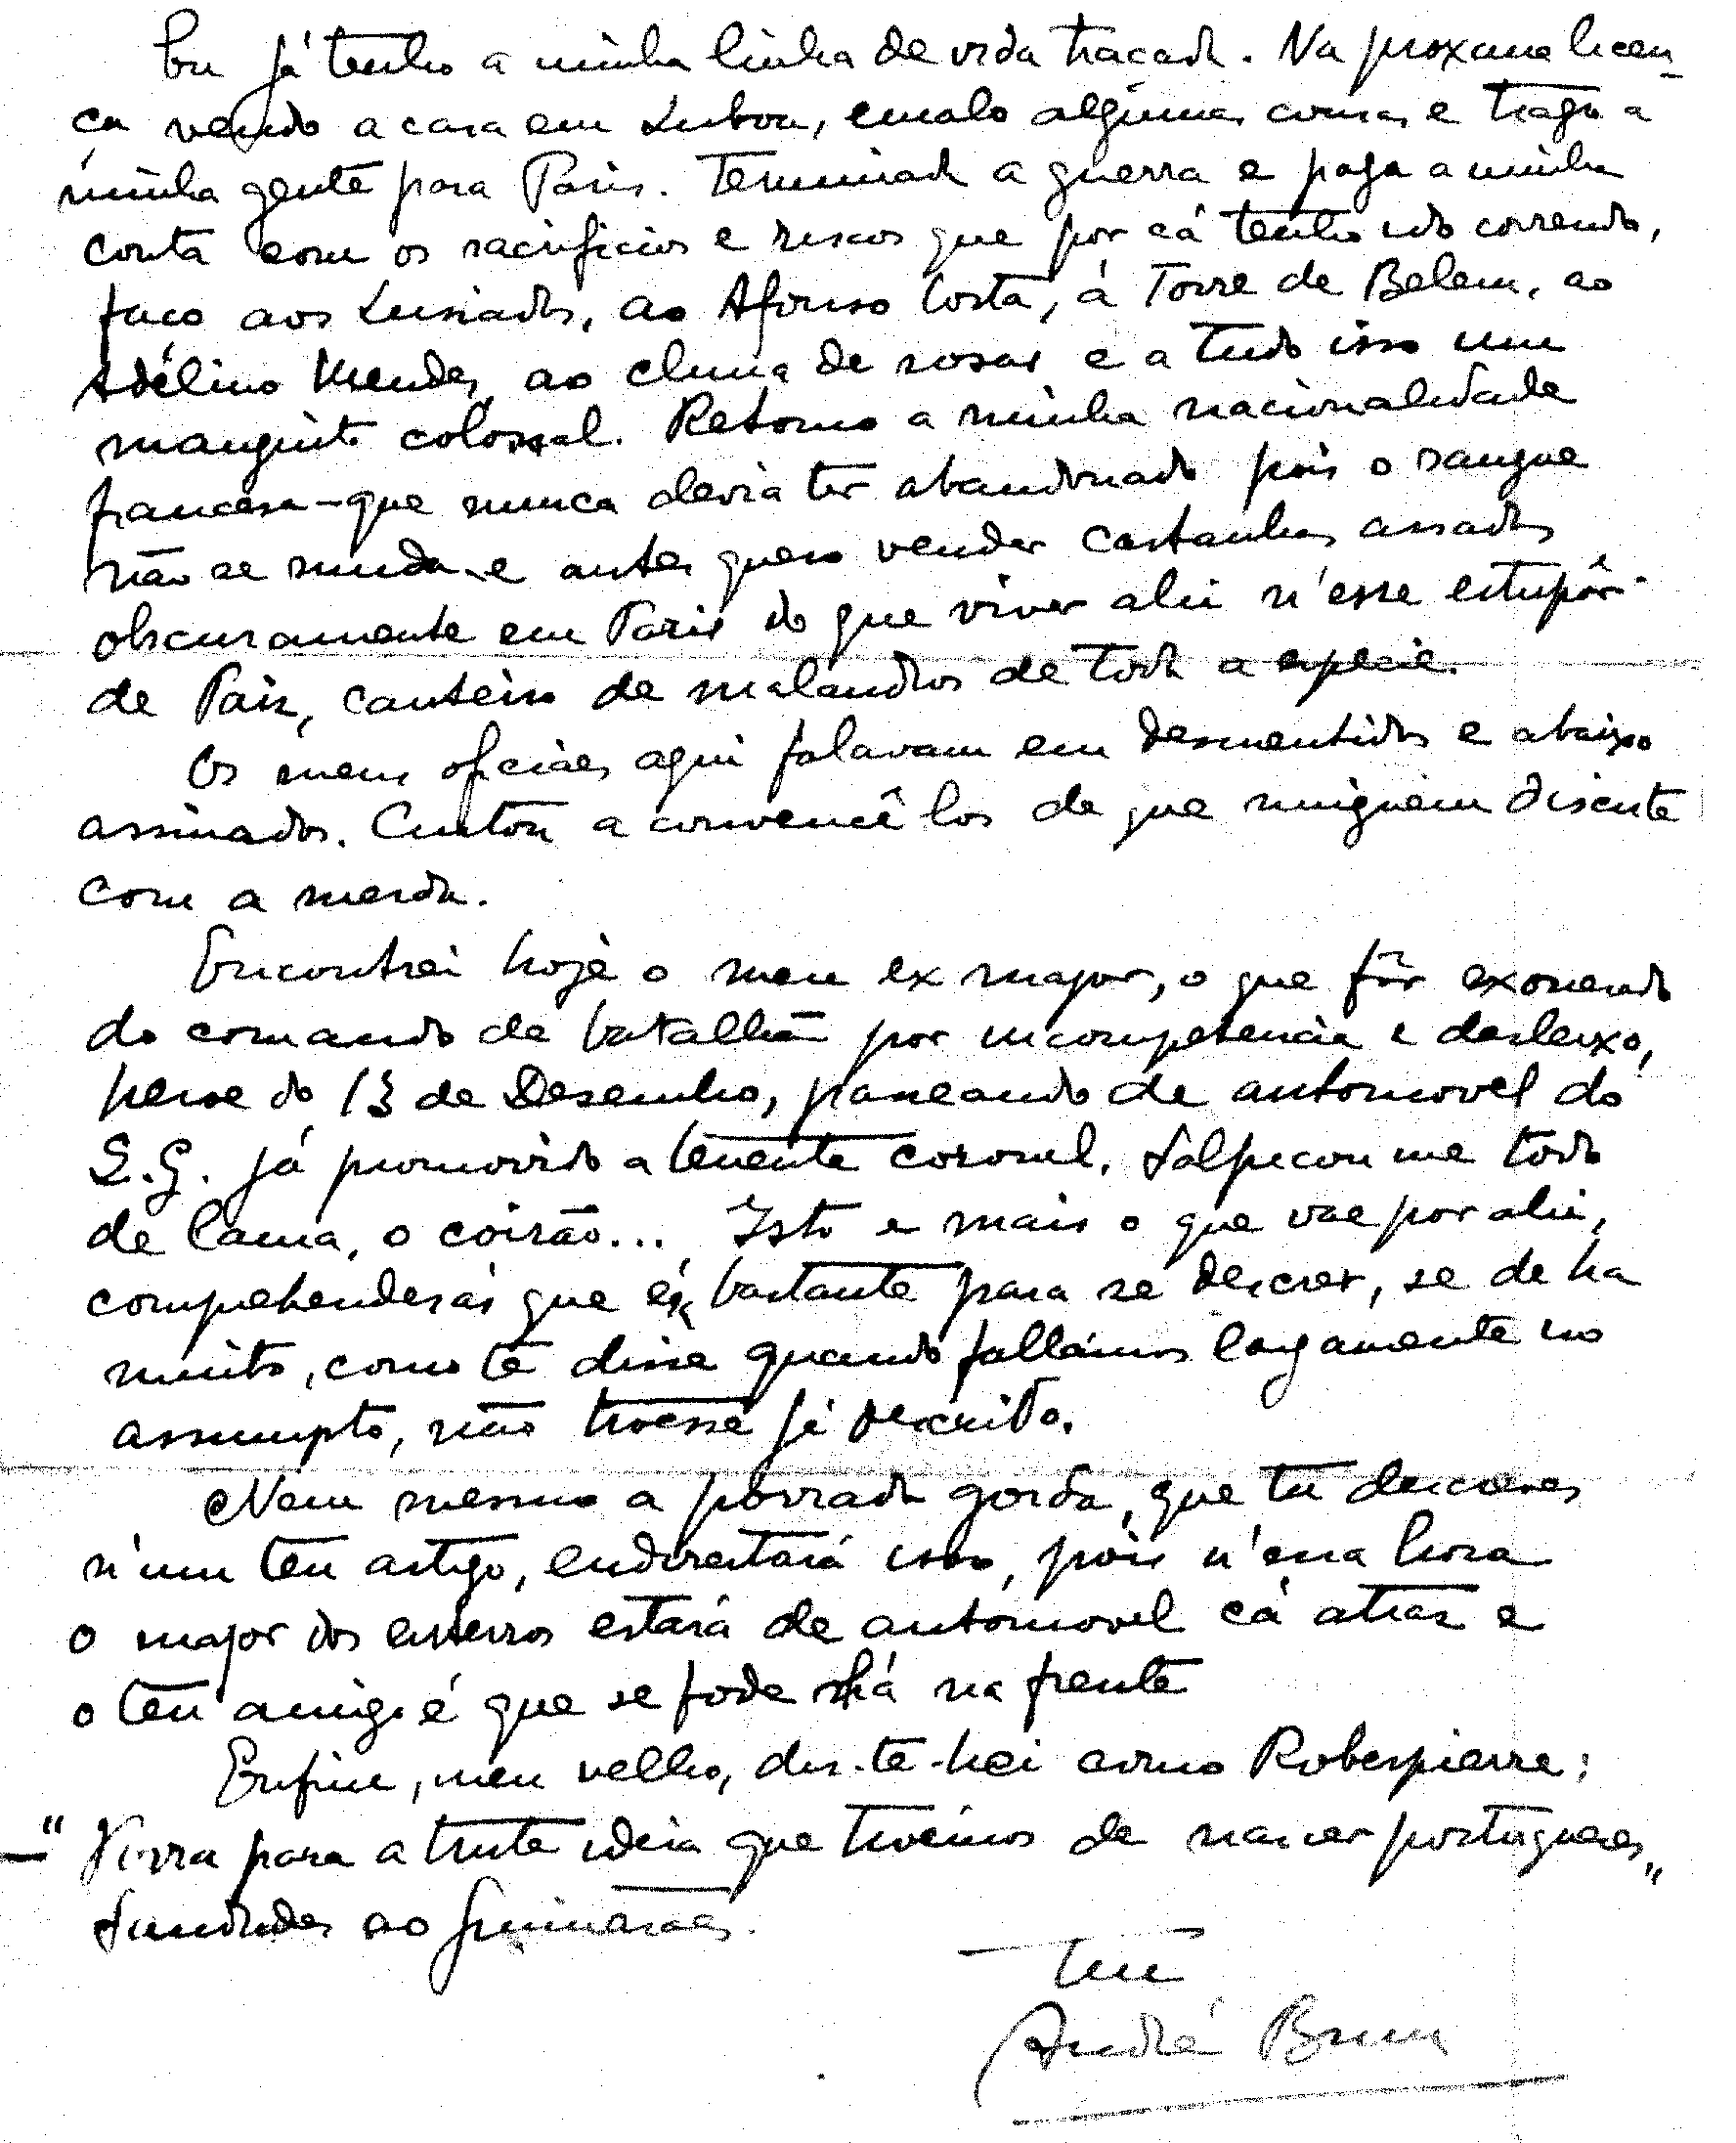 Eu já tenho a minha linha de vida traçada. Na proxima licen-
ça vendo a casa em Lisboa, emalo algumas cousas e trago a
minha gente para Paris. Terminada a guerra e paga a minha
conta com os sacrificios e riscos que por cá tenho ido correndo,
faço aos Lusiadas, ao Afonso Costa, á Torre de Belem, ao
Adelino Mendes, ao clima de rosas e a tudo isso um
manguito colossal. Retomo a minha nacionalidade
francesa - que nunca devia ter abandonado pois o sangue
não se muda, e antes quero vender castanhas assadas
obscuramente em Paris do que viver ahi n'esse estupôr
de Pais, canteiro de malandros de toda a especie.
Os meus oficiaes aqui falavam em desmentidos e abaixo
assinados. Custou a convencê los de que ninguem discute
com a merda.
Encontrei hoje o meu ex major, o que fôr exonerado
do comando de batalhão por incompetencia e desleixo,
heroe do 13 de Desembro, passeando de automovel do
Q.G. já promovido a tenente coronel. Salpicou me todo
de lama, o coirão... Isto e mais o que vae por ahi,
comprehenderás que é bastante para se descrer, se de ha
muito, como te disse quando fallámos largamente no
assumpto, não tivesse já descrido.
Nem mesmo a porrada gorda, que tu descreves
n'um teu artigo, endireitará isso, pois n'essa hora
o major dos enterros estará de automovel cá atraz e
o teu amigo é que se fode lá na frente
Enfim, meu velho, dir-te-hei como Robespierre:
—"Porra para a triste ideia que tivémos de nascer portugueses"
Saudades ao Guimarães.
Teu
André Brun